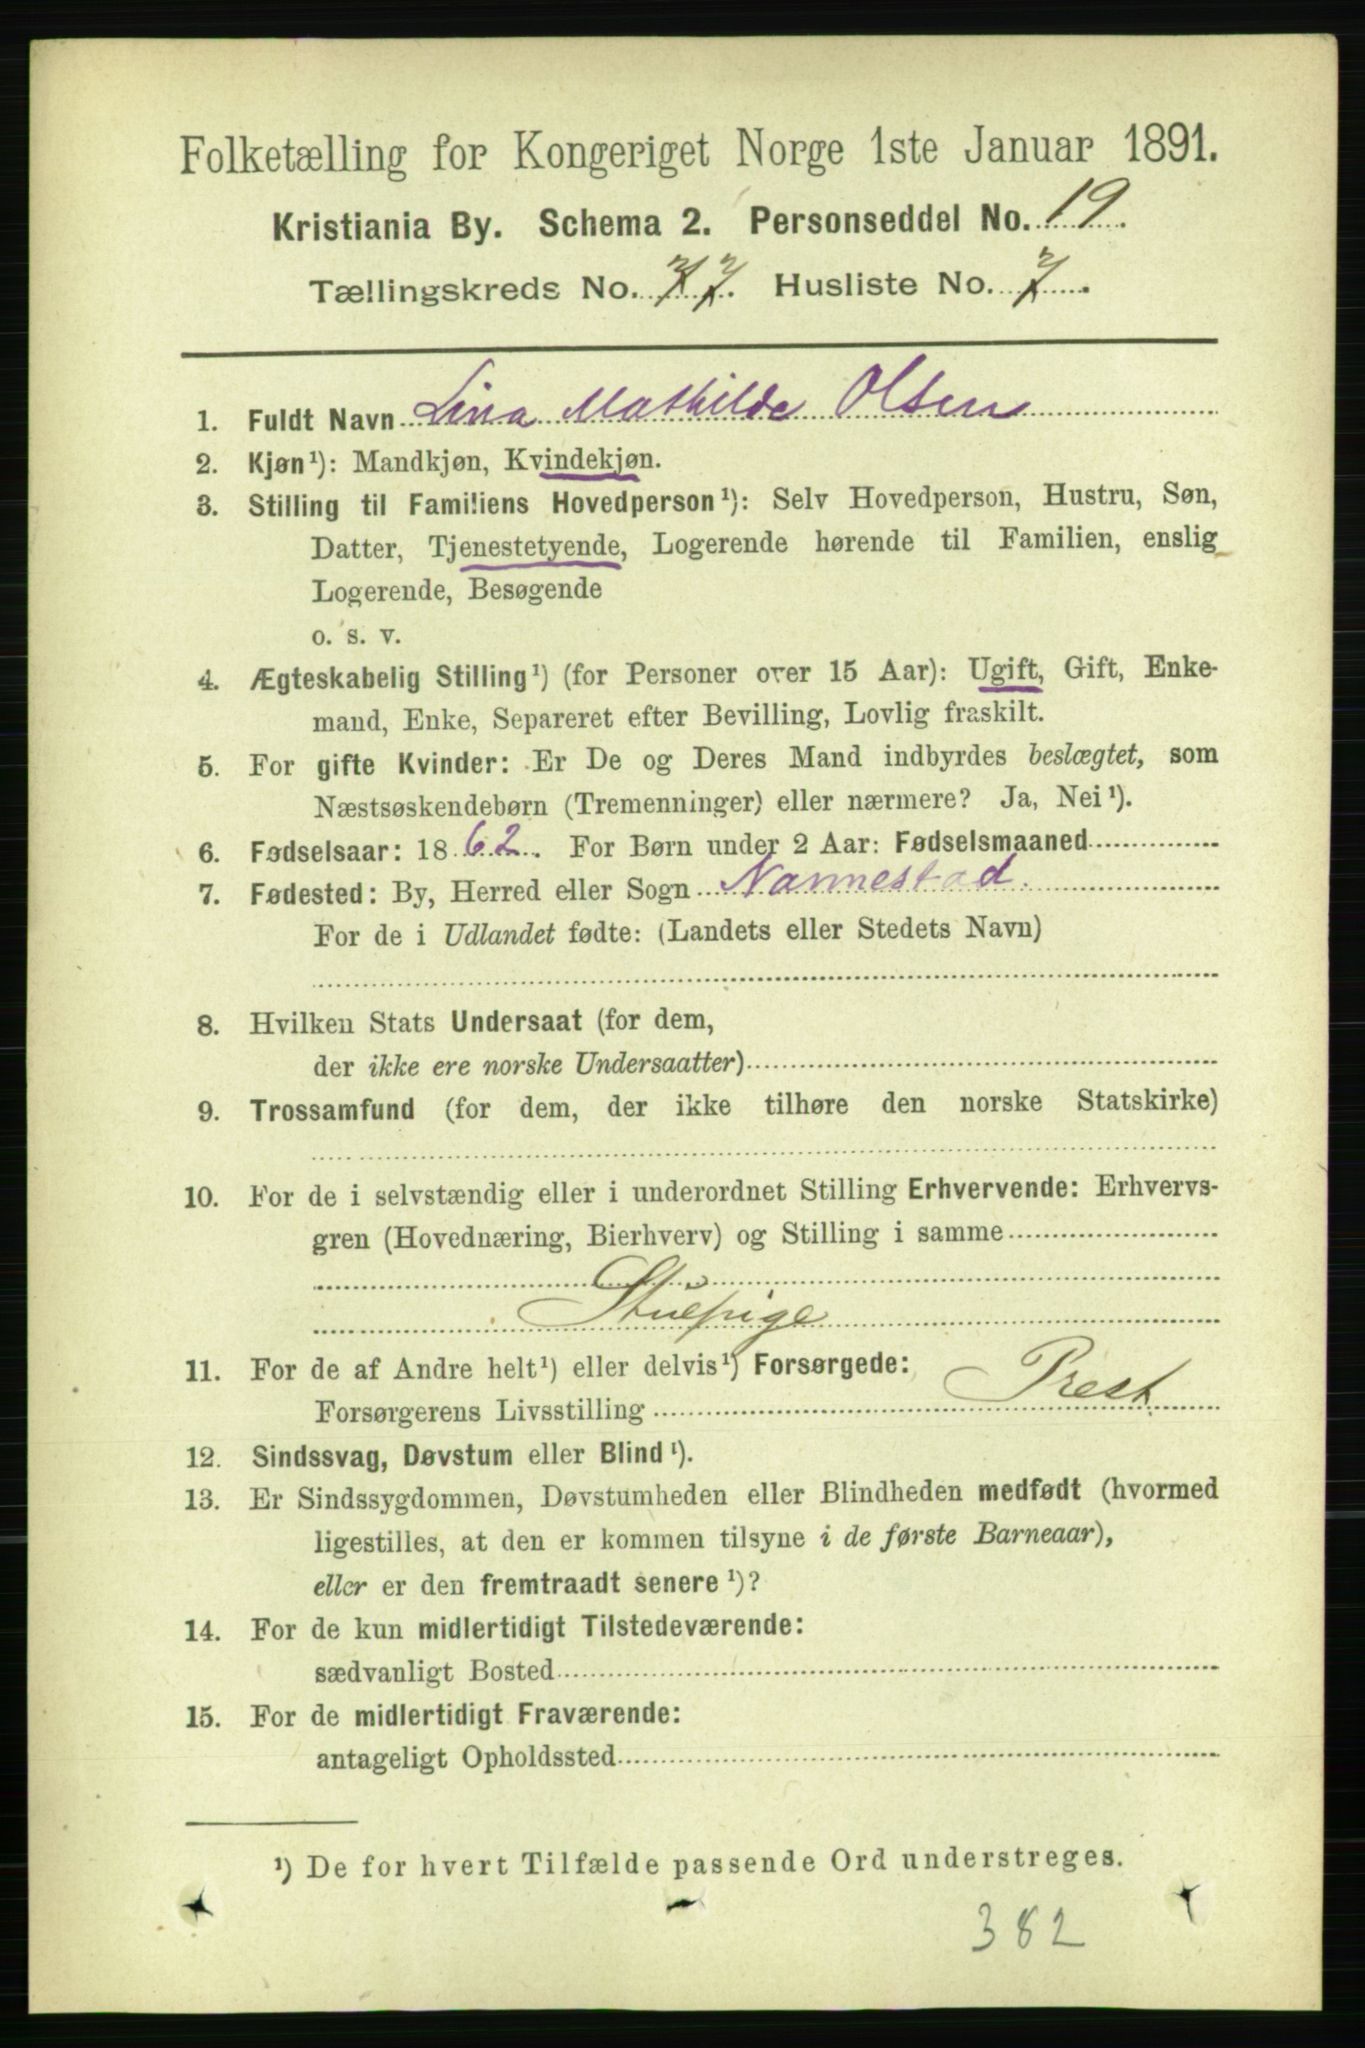 Folketælling for Kongeriget Norge 1ste Januar 1891.
Kristiania By. Schema 2. Personseddel No. 19.
Tællingskreds No. 77. Husliste No. 7.
1. Fuldt Navn Lina Mathilde Olsen
2. Kjøn¹): Mandkjøn, Kvindekjøn.
3. Stilling til Familiens Hovedperson¹): Selv Hovedperson, Hustru, Søn,
Datter, Tjenestetyende, Logerende hørende til Familien, enslig
Logerende, Besøgende
o. s. v.
4. Ægteskabelig Stilling¹) (for Personer over 15 Aar): Ugift, Gift, Enke-
mand, Enke, Separeret efter Bevilling, Lovlig fraskilt.
5. For gifte Kvinder: Er De og Deres Mand indbyrdes beslægtet, som
Næstsøskendebørn (Tremenninger) eller nærmere? Ja, Nei¹).
6. Fødselsaar: 1862. For Børn under 2 Aar: Fødselsmaaned
7. Fødested: By, Herred eller Sogn Nannestad.
For de i Udlandet fødte: (Landets eller Stedets Navn)
8. Hvilken Stats Undersaat (for dem,
der ikke ere norske Undersaatter)
9. Trossamfund (for dem, der ikke tilhøre den norske Statskirke)
10. For de i selvstændig eller i underordnet Stilling Erhvervende: Erhvervs-
gren (Hovednæring, Bierhverv) og Stilling i samme
Stuepige
11. For de af Andre helt¹) eller delvis¹) Forsørgede:
Forsørgerens Livsstilling Prest
12. Sindssvag, Døvstum eller Blind¹).
13. Er Sindssygdommen, Døvstumheden eller Blindheden medfødt (hvormed
ligestilles, at den er kommen tilsyne i de første Barneaar),
eller er den fremtraadt senere¹)?
14. For de kun midlertidigt Tilstedeværende:
sædvanligt Bosted
15. For de midlertidigt Fraværende:
antageligt Opholdssted
¹) De for hvert Tilfælde passende Ord understreges.
382